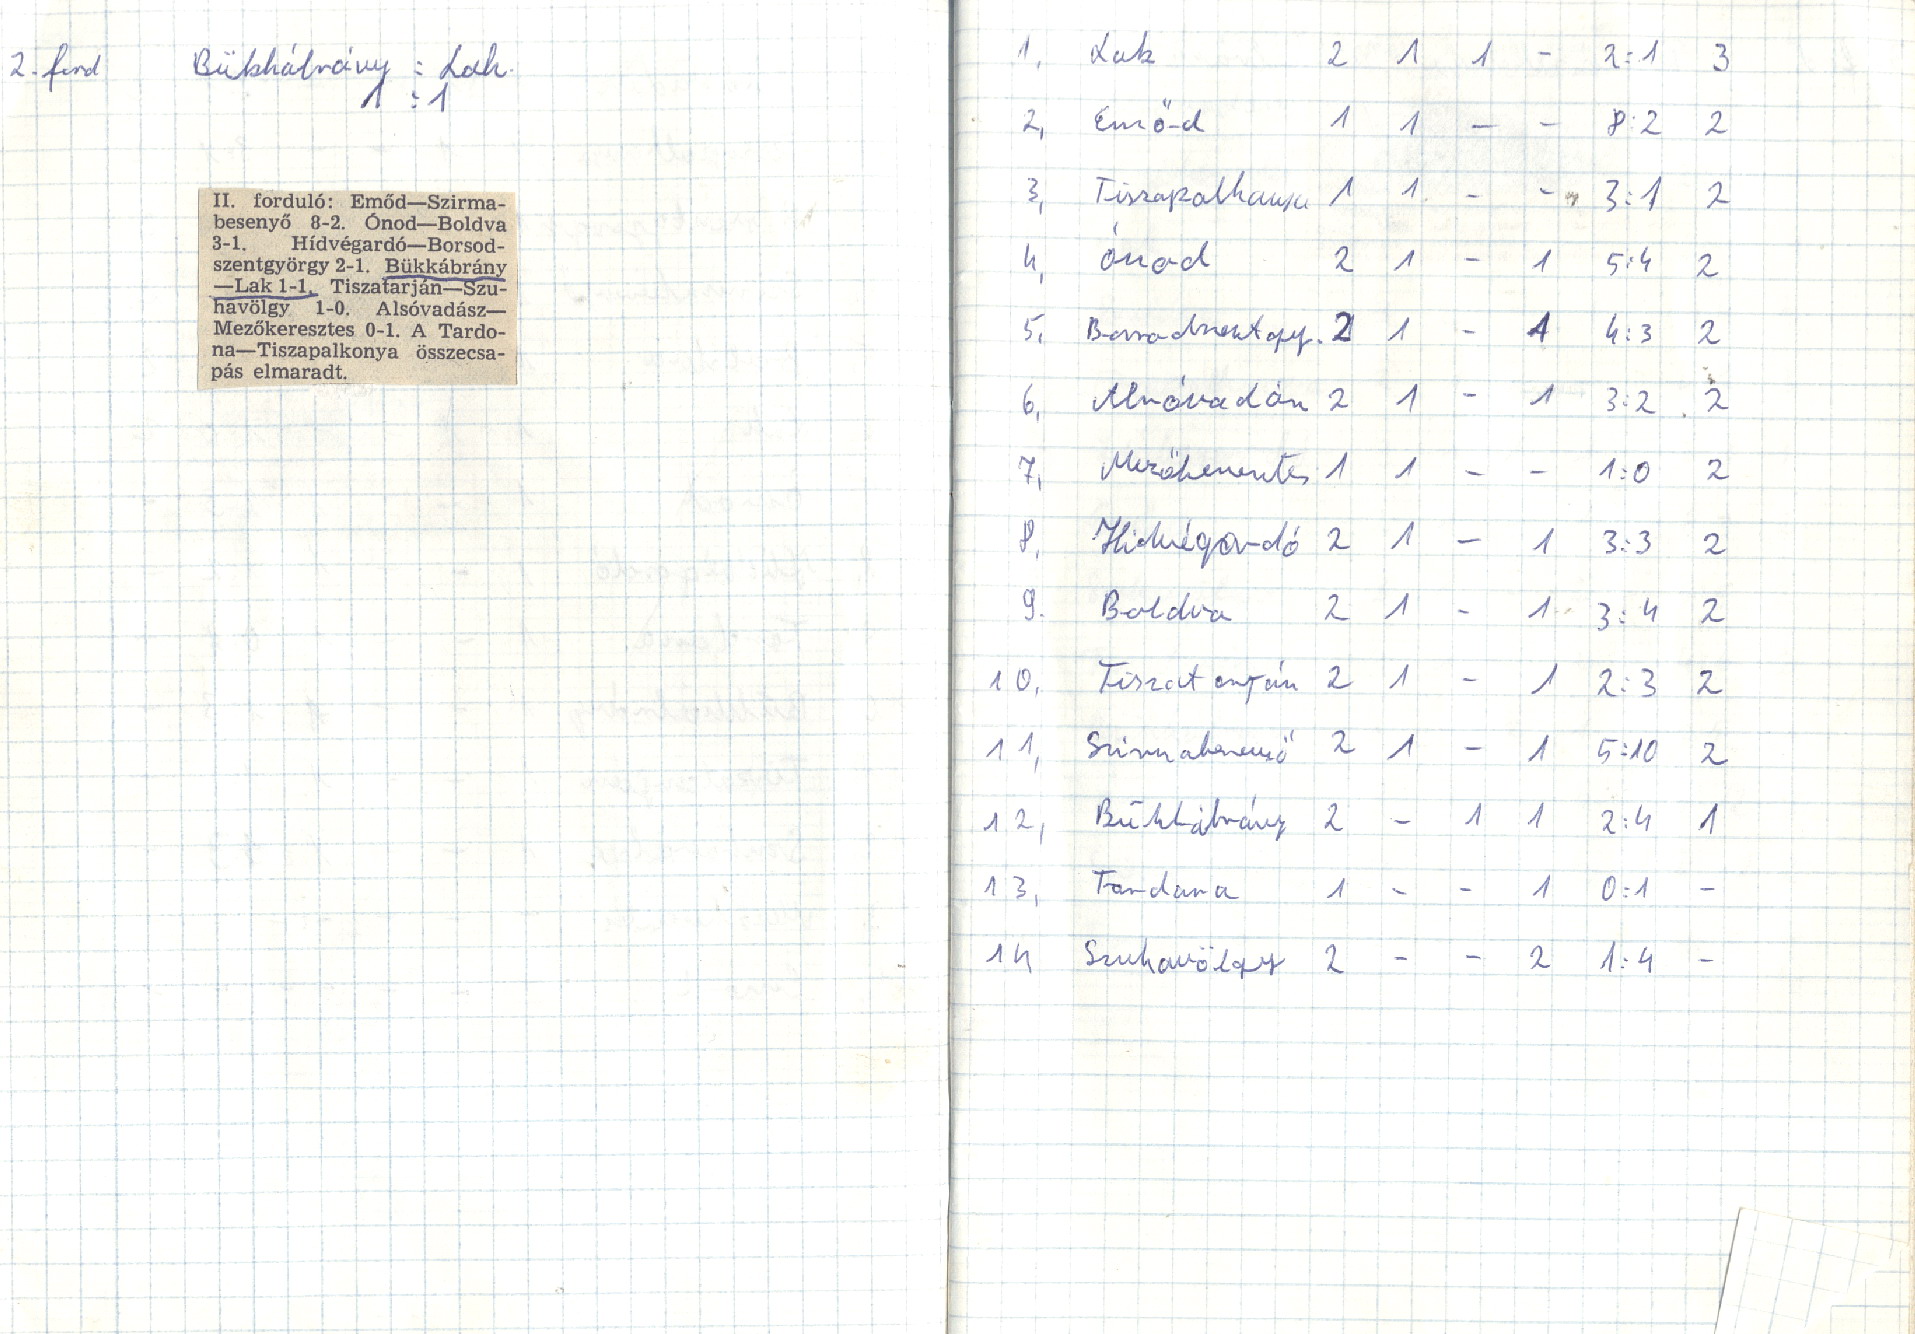 2. ford Bükkábrány : Lak.
1 : 1
II. forduló: Emőd—Szirma-
besenyő 8-2. Ónod—Boldva
3-1. Hídvégardó—Borsod-
szentgyörgy 2-1. Bükkábrány
—Lak 1-1. Tiszatarján—Szu-
havölgy 1-0. Alsóvadász—
Mezőkeresztes 0-1. A Tardo-
na—Tiszapalkonya összecsa-
pás elmaradt.
1, Lak 2 1 1 - 2:1 3
2, Emőd 1 1 - - 8:2 2
3, Tiszapalkonya 1 1 - - 3:1 2
4, Ónod 2 1 - 1 5:4 2
5, Borsodszentgy. 2 1 - 1 4:3 2
6, Alsóvadász 2 1 - 1 3:2 2
7, Mezőkeresztes 1 1 - - 1:0 2
8, Hidvégardó 2 1 - 1 3:3 2
9. Boldva 2 1 - 1 3:4 2
10, Tiszatarján 2 1 - 1 2:3 2
11, Szirmabesenyő 2 1 - 1 5:10 2
12, Bükkábrány 2 - 1 1 2:4 1
13, Tardona 1 - - 1 0:1 -
14 Szuhavölgy 2 - - 2 1:4 -